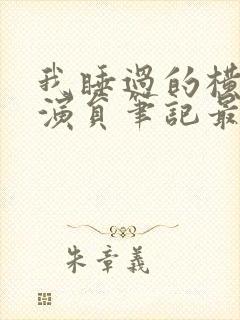 我睡過的橫
演員筆記最
朱章義